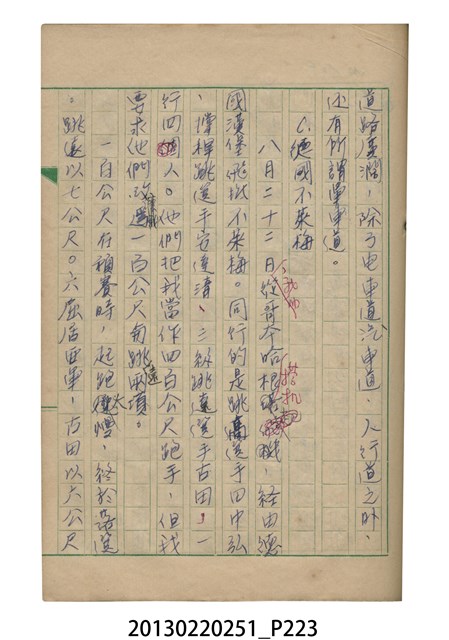 道路廣濶，除了电車道汽車道，人行道之外，
还有所謂單車道。
C.德國不萊梅
八月二十二日，我們從哥本哈根搭机，経由德
國漢堡飛抵不萊梅。同行的是跳高選手田中弘
、撑桿跳選手安達清、三級跳遠選手古田，一
行四個人。他們把我當作四百公尺跑手，但我
要求他們改為一百公尺與跳遠兩項。
一百公尺在預賽時，起跑太慢，終於落選
。跳遠以七公尺〇六屈居亞軍，古田以六公尺
20130220251_P223